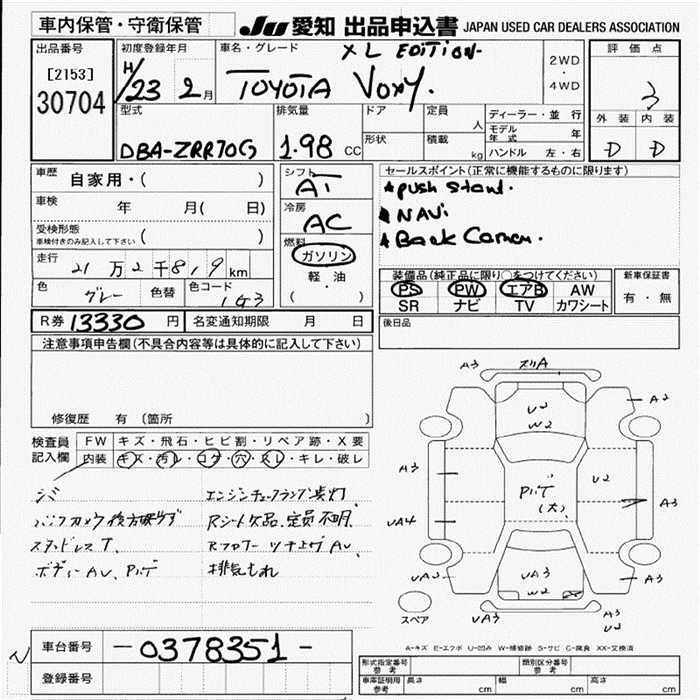 車内保管・守衛保管
JU 愛知 出品申込書 JAPAN USED CAR DEALERS ASSOCIATION
出品番号
[2153]
30704
初度登録年月
H/23 2月
車名・グレード
XL EDITION
TOYOTA VOXY.
2WD
・
4WD
評価点
3
外装 内装
D D
型式
DBA-ZRR70G
排気量
1.98 CC
ドア
形状
定員
人
積載
kg
ディーラー・並行
モデル年式 年
ハンドル 左・右
車歴
自家用・( )
車検
年 月( 日)
受検形態
車検付きのみ記入して下さい ( )
走行
21万2千819km
色
グレー
色替
色コード
1G3
シフト
AT
冷房
AC
燃料
ガソリン
軽・油
( )
セールスポイント(正常に機能するものに限ります)
★push start.
★NAVi
★Back Camera.
装備品(純正品に限り○をつけてください)
PS PW エアB AW
SR ナビ TV カワシート
新車保証書
有・無
R券 13330 円
名変通知期限 月 日
後日品
注意事項申告欄(不具合内容等は具体的に記入して下さい)
修復歴 有 (箇所 )
検査員記入欄
FW キズ・飛石・ヒビ割・リペア跡・X要
内装 キズ・汚レ・コゲ・穴・スレ・キレ・破レ
シミ
エンジンチェックランプ点灯
バックカメラ後方映らず
Rシート欠品、定員不明、
スタッドレスT.
Rフロアー ツキ上ゲ AU、
ボディーAU、P凹デ
排気もれ
A3 ズリA
A2
U2
W2
A3
P凹デ
(大)
U2
A3
UA4
UA3
UA3
W2
A3
スペア
UA3
A3
U2
A-キズ E-エクボ U-凹み W-補修跡 S-サビ C-腐食 XX-交換済
車台番号
-0378351-
登録番号
形式指定番号
参考
類別区分番号
参考
車庫証明用
参考
長さ cm
幅 cm
高さ cm